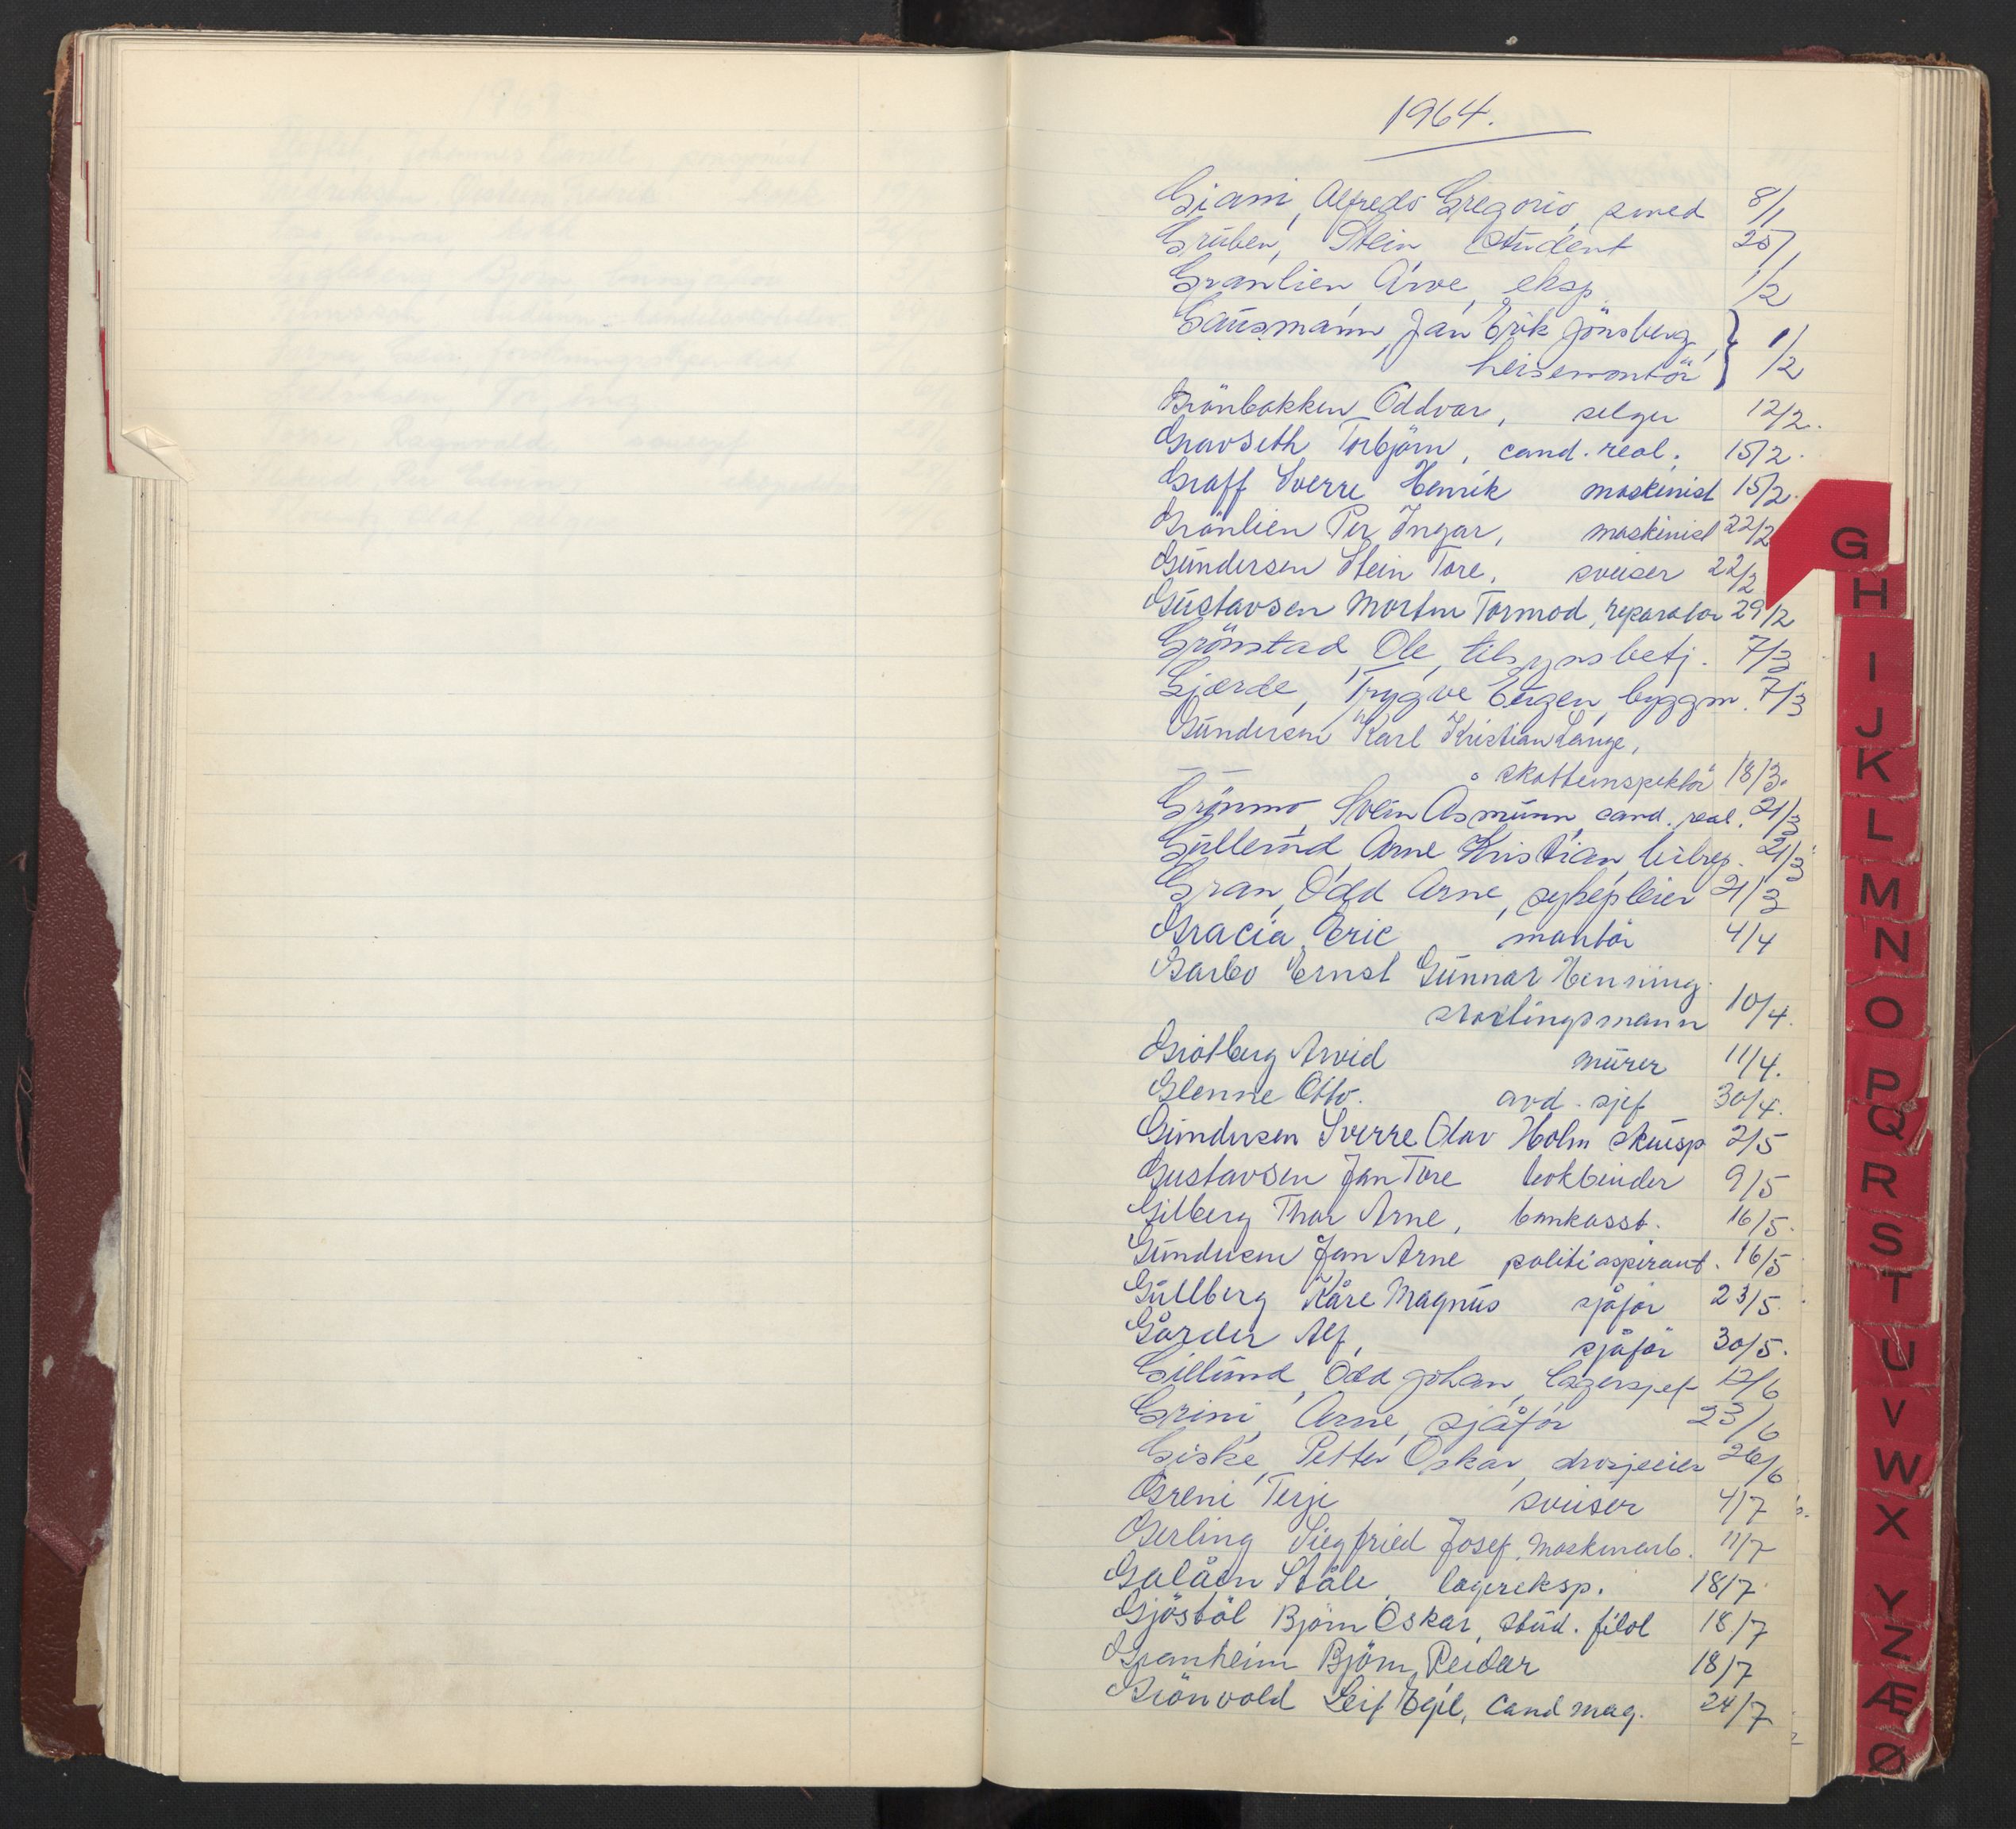 1964.
Giani, Alfredo Gregorio, smed 8/1
Gruben, Stein student 25/1
Granlien, Arve, eksp. 1/2
Gausmann, Jan Erik Jönsberg,
heisemontör } 1/2
Grönbakken Oddvar, selger 12/2.
Gravseth Torbjörn, cand. real. 15/2.
Graff Sverre Henrik maskinist 15/2.
Grönlien Per Ingar, maskinist 22/2
Gundersen Stein Tore, sveiser 22/2
Gustavsen Morten Tormod, reparatör 29/2
Grönstad, Ole, tilsynsbetj. 7/3
Gjærde, Trygve Eugen, byggm. 7/3
Gundersen Karl Kristian Lange,
skatteinspektör 18/3.
Grönmo, Svein Åsmunn, cand. real. 21/3
Gullerud, Arne Kristian, bilrep. 21/3
Gran, Odd Arne, sykepleier 21/3
Gracia, Eric montör 4/4
Garbo Ernst Gunnar Henning.
stortingsmann 10/4.
Gråtberg Arvid murer 11/4.
Glenne Otto. avd. sjef 30/4.
Gundersen Sverre Olav Holm skuesp 2/5
Gustavsen Jan Tore bokbinder 9/5
Gilberg Thor Arne, bankasst. 16/5.
Gundersen Jan Arne politiaspirant. 16/5
Gullberg Kåre Magnus sjåför 23/5.
Gårder Alf, sjåför 30/5.
Gillund, Odd Johan, lagersjef 12/6
Grini, Arne, sjåför 23/6
Giske, Petter Oskar, drosjeeier 26/6
Greni Terje sveiser 4/7
Gerling Siegfried Josef, maskinarb. 11/7
Galåen Ståle, lagereksp. 18/7
Gjöstöl Björn Oskar, stud. filol 18/7
Granheim Björn Reidar 18/7
Grönvold Leif Egil, cand mag. 24/7
G
H
I
J
K
L
M
N
O
P
Q
R
S
T
U
V
W
X
Y
Z
Æ
Ø